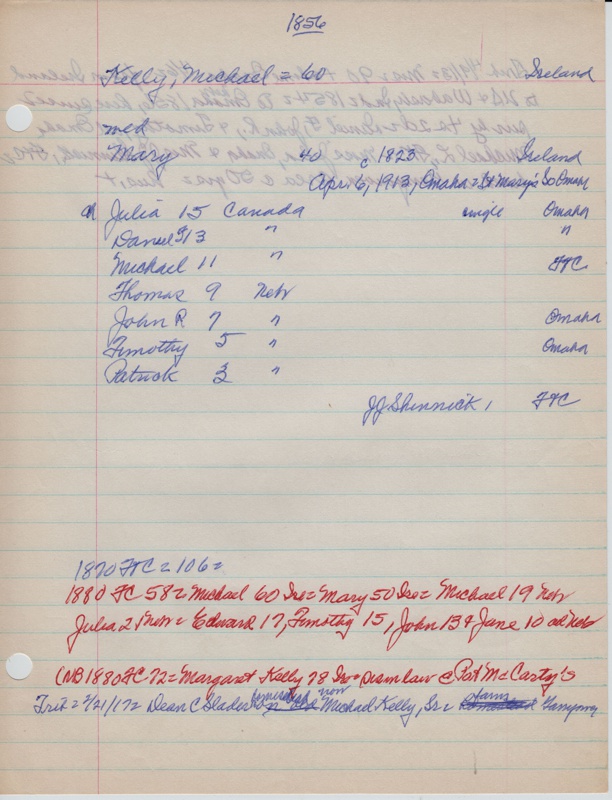 1856
Kelly, Michael = 60 Ireland
wed
Mary 40 c 1823 Ireland
Apr. 6, 1913, Omaha = St Mary's So Omaha
ch Julia 15 Canada single Omaha
Daniel 13 " "
Michael 11 " FTC
Thomas 9 Nebr
John R 7 " Omaha
Timothy 5 " Omaha
Patrick 3 "
JJ Shinnick 1 FTC
1870 FTC = 106 =
1880 FC 58 = Michael 60 Ire = Mary 50 Ire = Michael 19 Nebr
Julia 21 Nebr = Edward 17, Timothy 15, John 13 & Jane 10 all Nebr
(NB 1880 FC 72 = Margaret Kelly 78 Ire = @ Pat McCarty's
Trib = 2/21/17 = Dean C Slader now Michael Kelly, Sr = farm